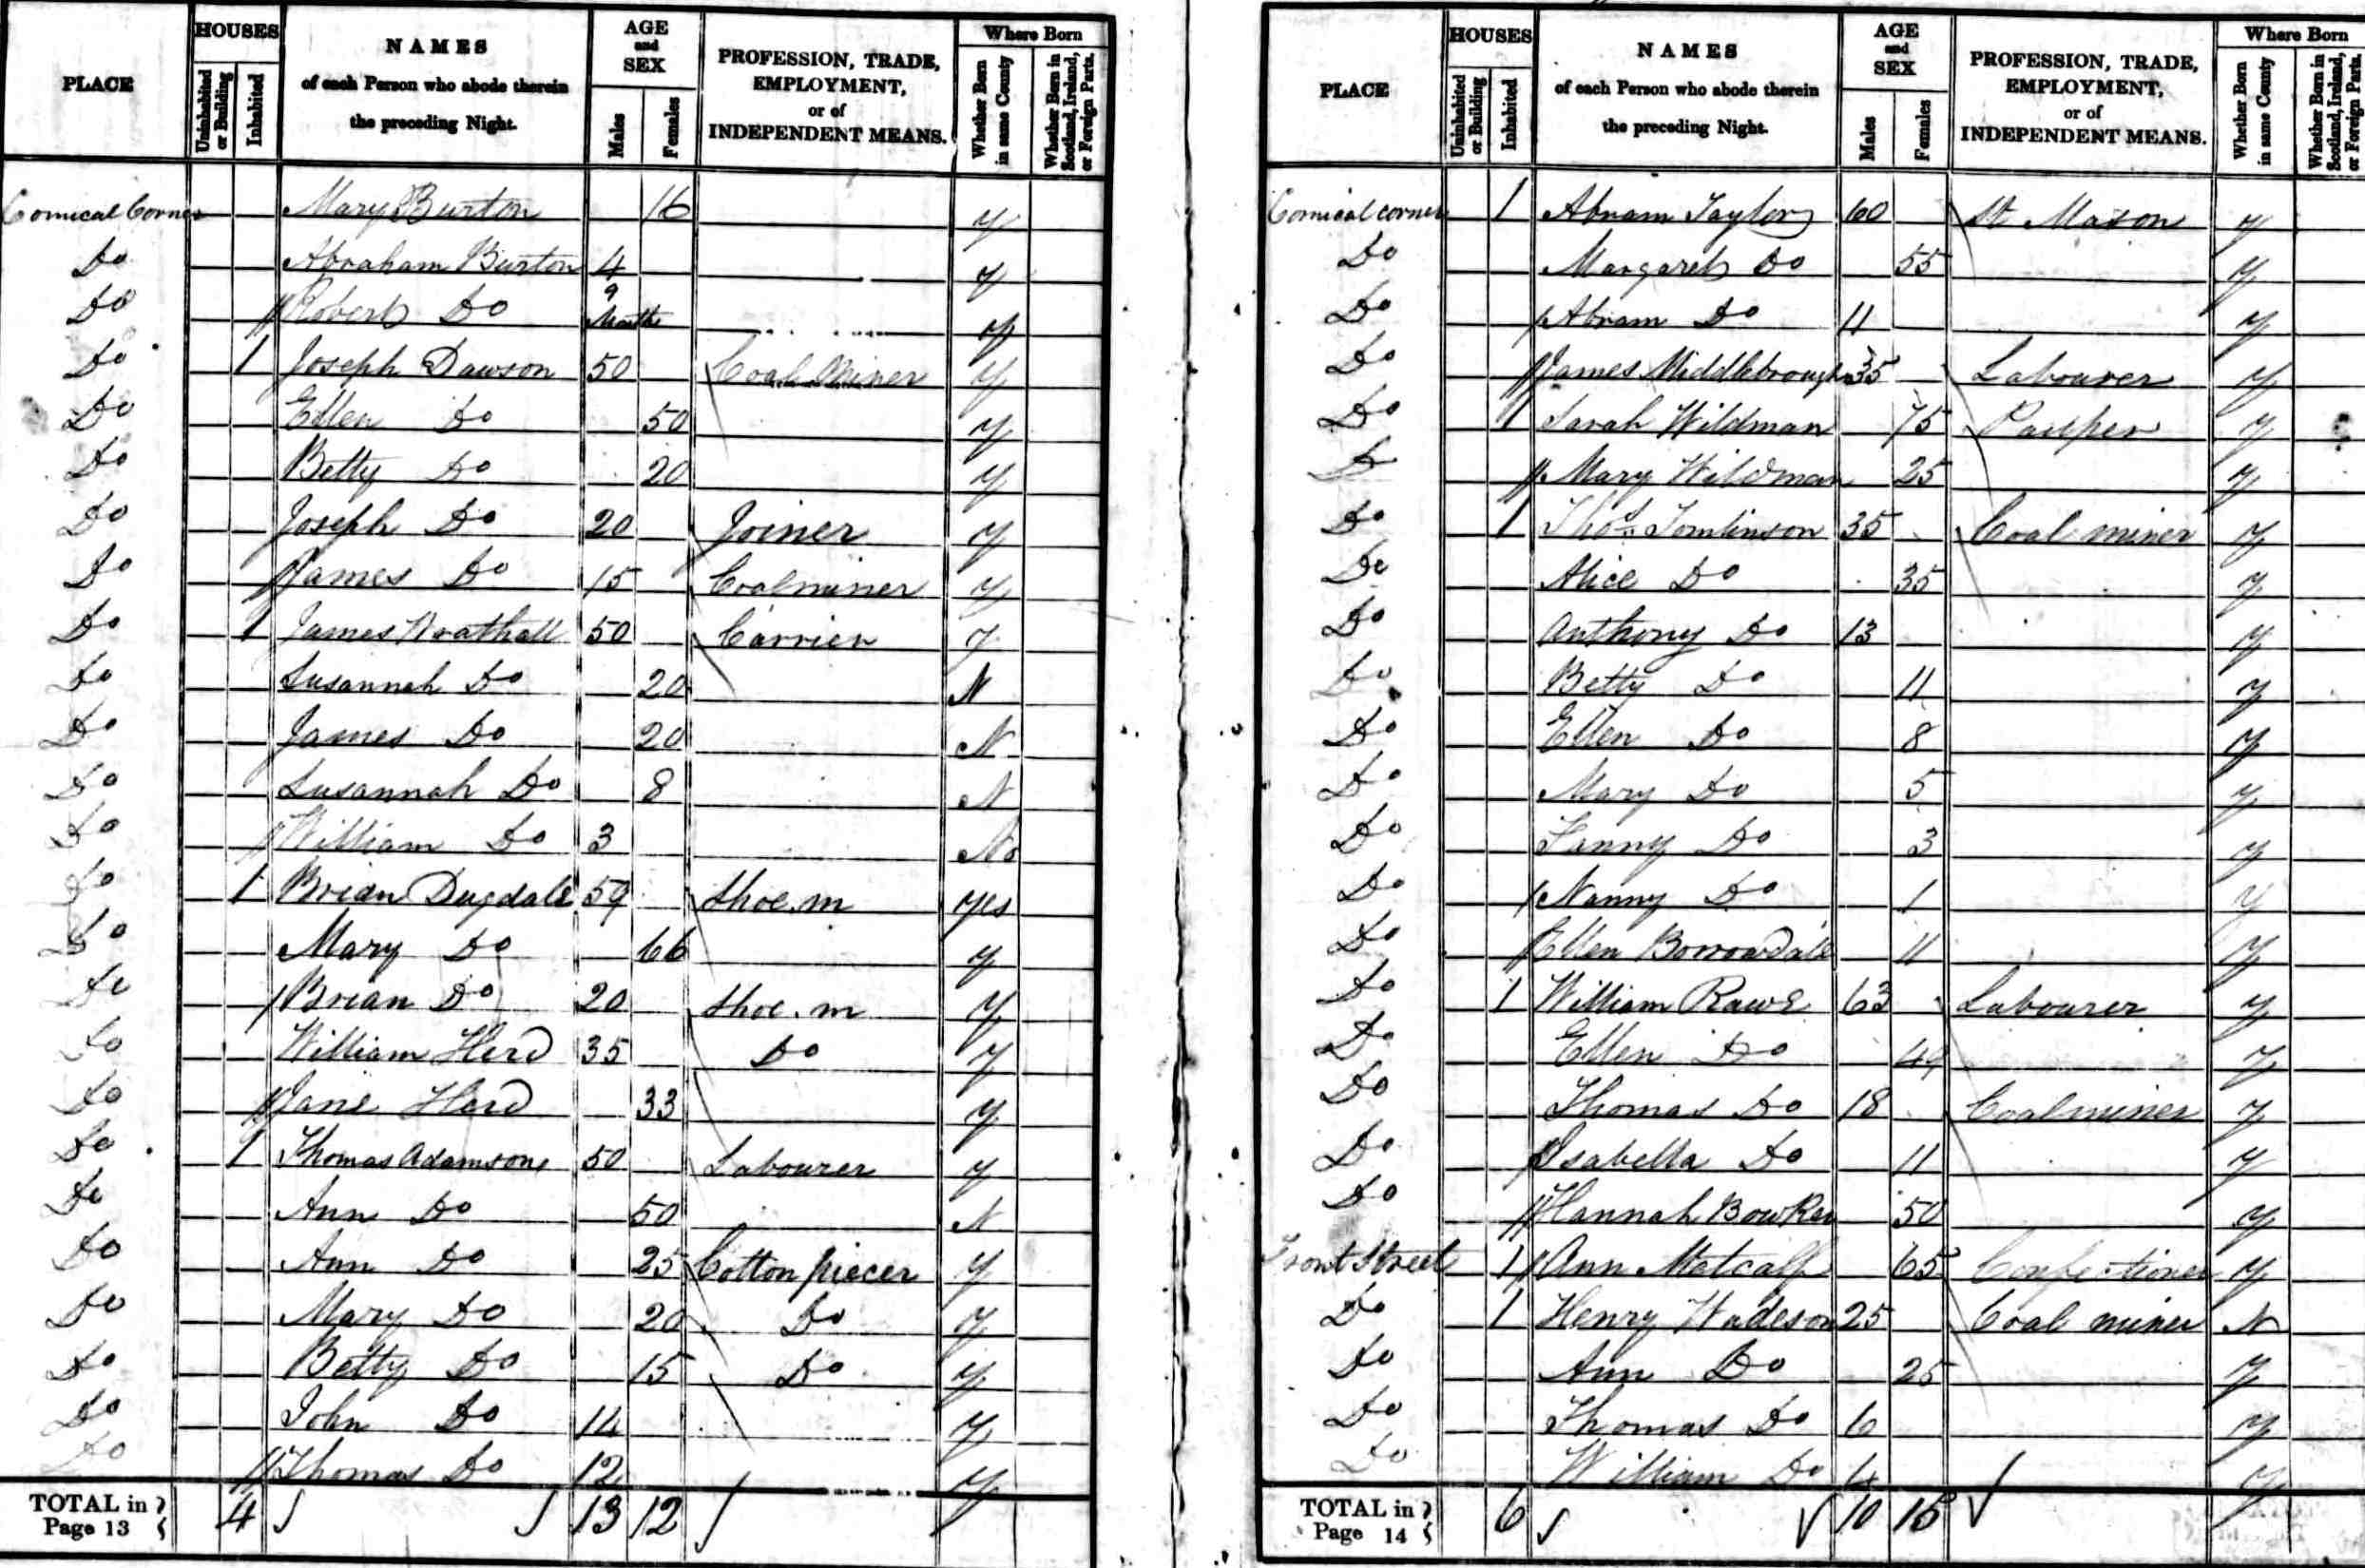 PLACE
HOUSES
Uninhabited or Building
Inhabited
NAMES
of each Person who abode therein
the preceding Night.
AGE and SEX
Males
Females
PROFESSION, TRADE, EMPLOYMENT, or of INDEPENDENT MEANS.
Where Born
Whether Born in same County
Whether Born in Scotland, Ireland, or Foreign Parts.
Comical Corner Mary Burton 16 y
Do Abraham Burton 4 y
Do Robert Do 9 Months y
Do 1 Joseph Dawson 50 Coal Miner y
Do Ellen Do 50 y
Do Betty Do 20 y
Do Joseph Do 20 Joiner y
Do James Do 15 Coalminer y
Do 1 James Wrathall 50 Carrier y
Do Susannah Do 20 N
Do James Do 20 N
Do Susannah Do 8 N
Do William Do 3 No
Do 1 Brian Dugdale 59 Shoe.m yes
Do Mary Do 66 y
Do Brian Do 20 Shoe.m y
Do William Herd 35 Do y
Do Jane Herd 33 y
Do 1 Thomas Adamson 50 Labourer y
Do Ann Do 50 N
Do Ann Do 25 Cotton piecer y
Do Mary Do 20 Do y
Do Betty Do 15 Do y
Do John Do 14 y
Do Thomas Do 12 y
TOTAL in Page 13 4 13 12
PLACE
HOUSES
Uninhabited or Building
Inhabited
NAMES
of each Person who abode therein
the preceding Night.
AGE and SEX
Males
Females
PROFESSION, TRADE, EMPLOYMENT, or of INDEPENDENT MEANS.
Where Born
Whether Born in same County
Whether Born in Scotland, Ireland, or Foreign Parts.
Comical corner 1 Abram Taylor 60 St Mason y
Do Margaret Do 55 y
Do Abram Do 11 y
Do James Middlebrough 35 Labourer y
Do 1 Sarah Wildman 75 Pauper y
Do Mary Wildman 25 y
Do 1 Thos Tomlinson 35 Coal miner y
Do Alice Do 35 y
Do Anthony Do 13 y
Do Betty Do 11 y
Do Ellen Do 8 y
Do Mary Do 5 y
Do Fanny Do 3 y
Do Nanny Do 1 y
Do Ellen Borrowdale 11 y
Do 1 William Rawe 63 Labourer y
Do Ellen Do 49 y
Do Thomas Do 18 Coalminer y
Do Isabella Do 11 y
Do Hannah Bowker 50 y
Front Street 1 Ann Metcalf 65 Confectioner y
Do 1 Henry Wadeson 25 Coal miner N
Do Ann Do 25 y
Do Thomas Do 6 y
Do William Do 4 y
TOTAL in Page 14 6 10 15